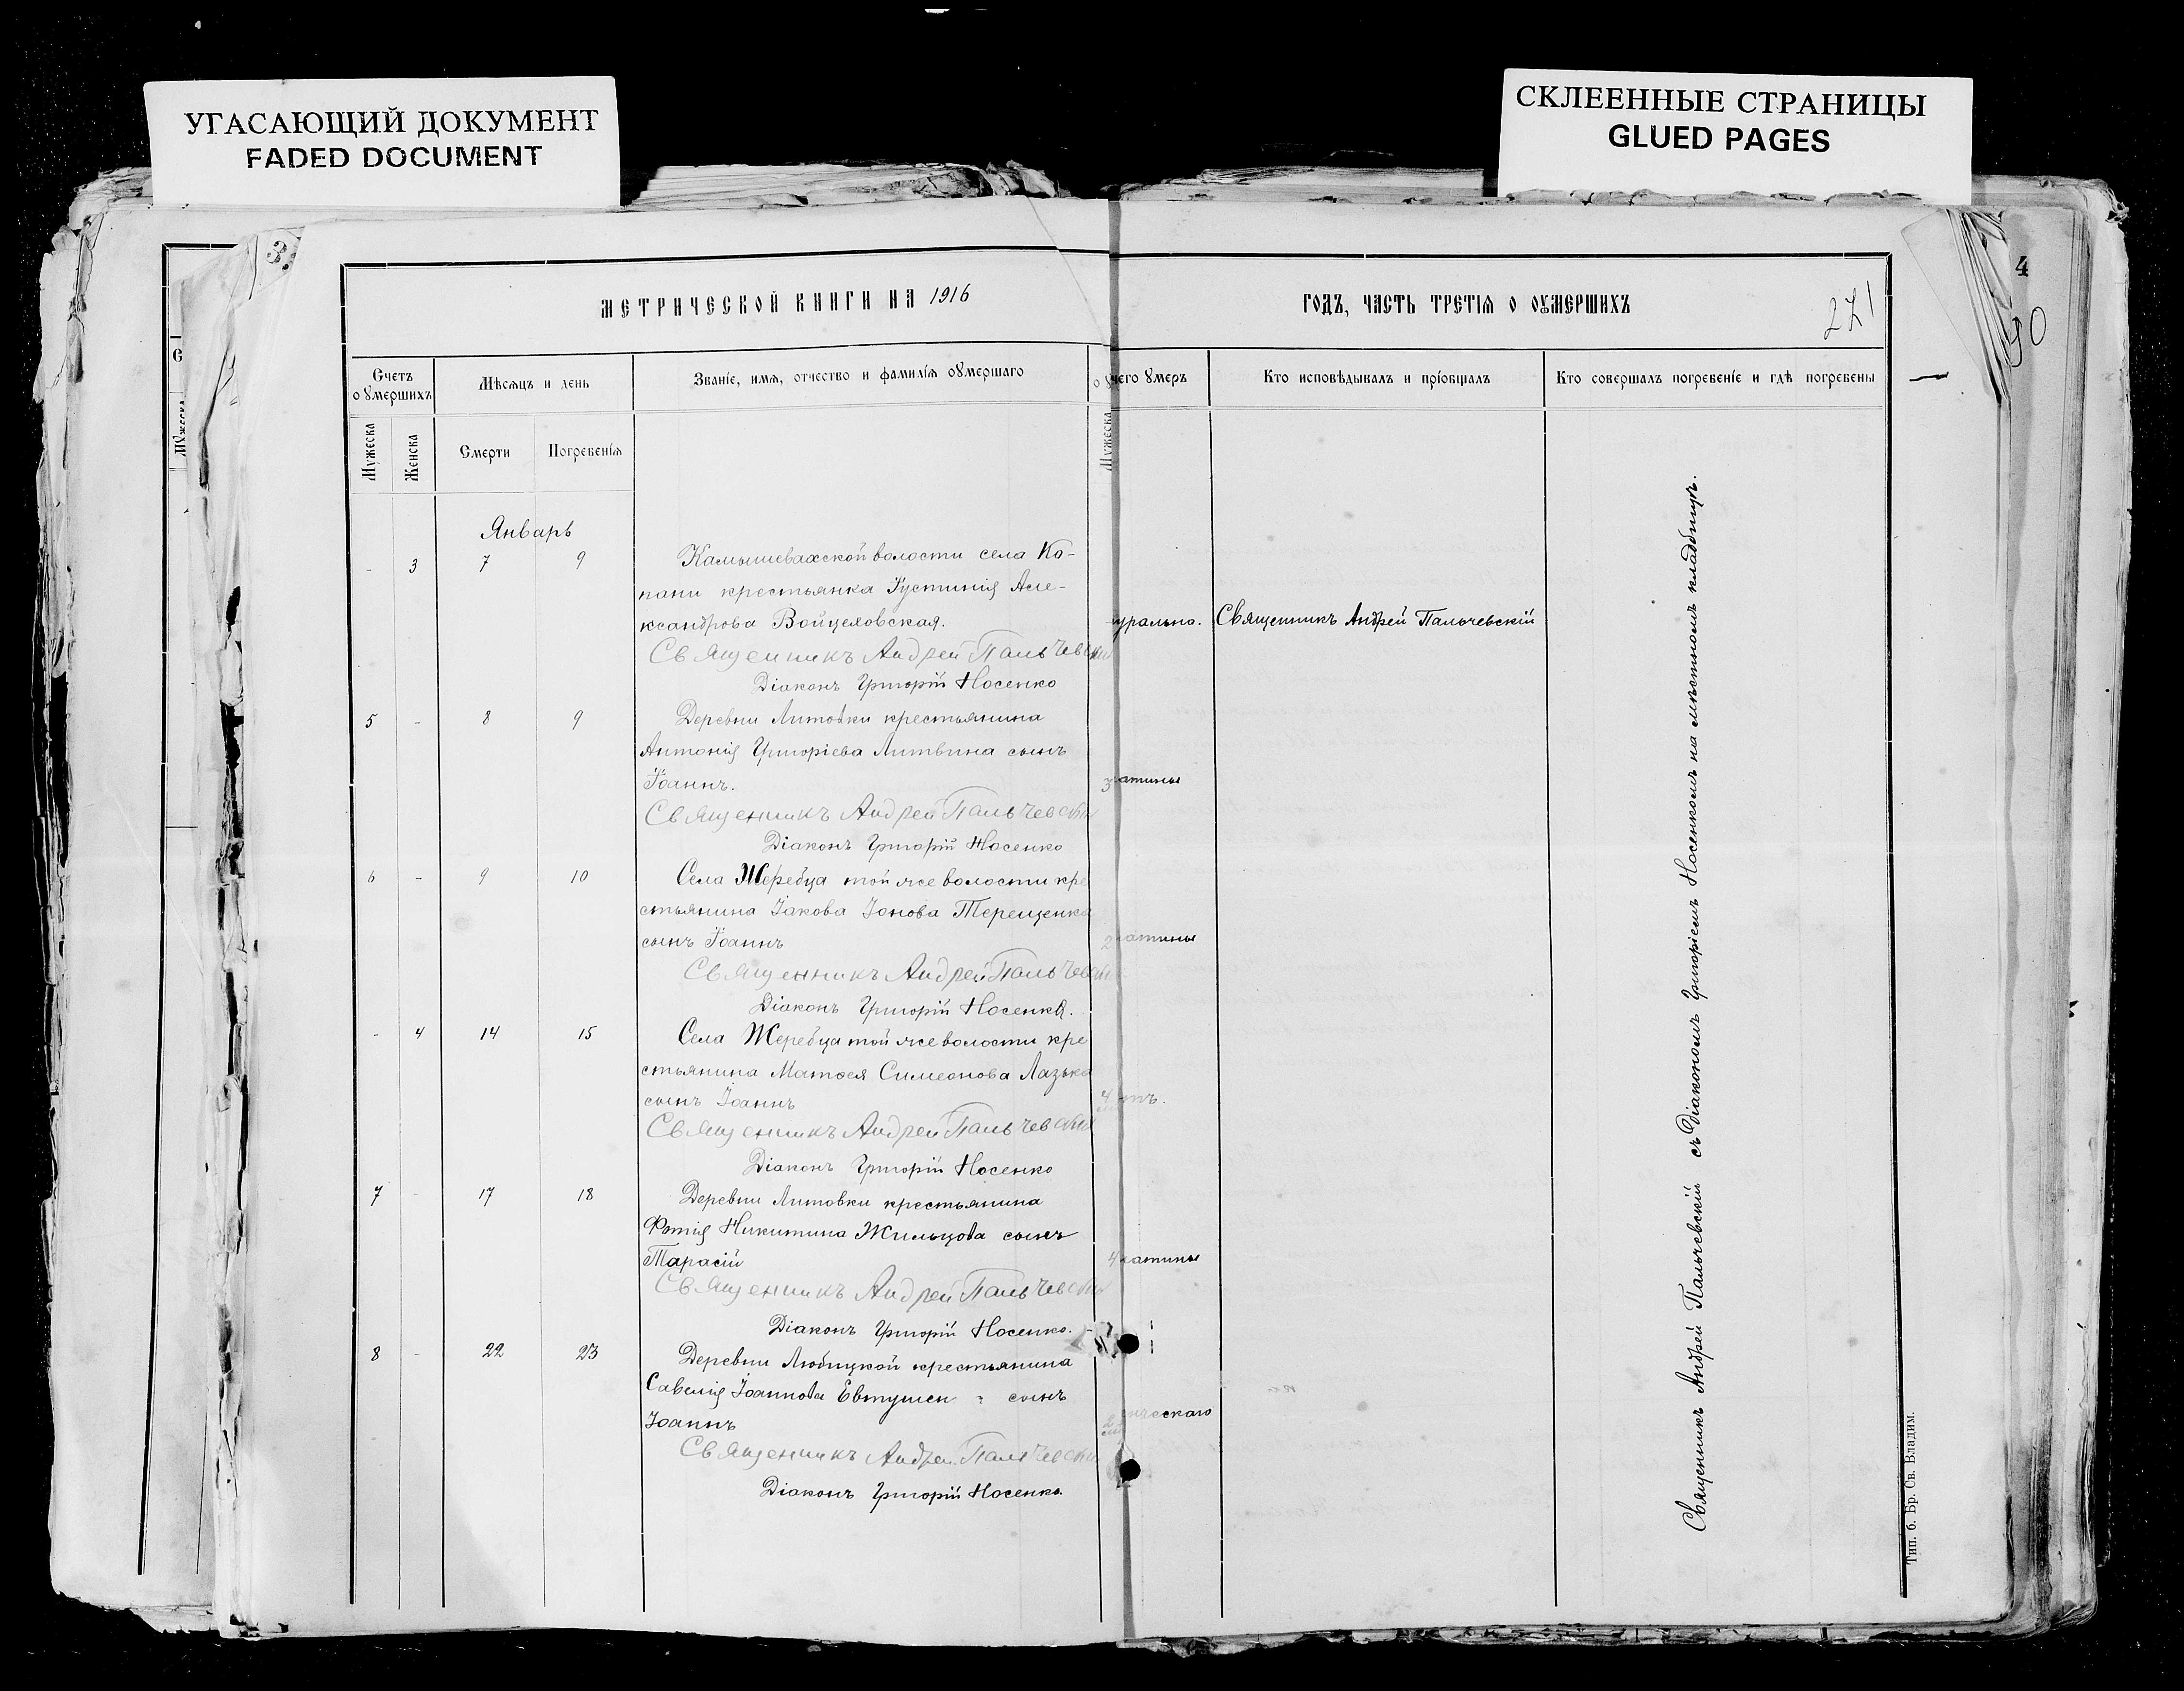 УГАСАЮЩИЙ ДОКУМЕНТ
FADED DOCUMENT
СКЛЕЕННЫЕ СТРАНИЦЫ
GLUED PAGES
3.
4
МЕТРИЧЕСКОЙ КНИГИ НА 1916
ГОДЪ, ЧАСТЬ ТРЕТІЯ О ОУМЕРШИХЪ
271
90
Счетъ
оумершихъ
Мѣсяцъ и день
Званіе, имя, отчество и фамилія оумершаго
чего умеръ
Кто исповѣдывалъ и пріобщалъ
Кто совершалъ погребеніе и гдѣ погребены
Мужеска
Женска
Смерти
Погребенія
Мужеска
Январь
- 3 7 9 Камышевахской волости села Ко-
пани крестьянка Іустинія Але-
ксандрова Войцеховская.
урально. Священникъ Андрей Пальчевскій
Священникъ Андрей Пальчевскій
Діаконъ Григорій Носенко
5 - 8 9 Деревни Литовки крестьянина
Антонія Григоріева Литвина сынъ
Іоаннъ.
3 атины
Священникъ Андрей Пальчевскій
Діаконъ Григорій Носенко
6 - 9 10 Села Жеребца той же волости кре
стьянина Іакова Іонова Терещенка
сынъ Іоаннъ
2 атины
Священникъ Андрей Пальчевскій
Діаконъ Григорій Носенко.
- 4 14 15 Села Жеребца той же волости кре
стьянина Матѳея Симеонова Лазька
сынъ Іоаннъ
4
Священникъ Андрей Пальчевскій
Діаконъ Григорій Носенко
7 - 17 18 Деревни Литовки крестьянина
Фотія Никитина Жильцова сынъ
Тарасій
4 атины
Священникъ Андрей Пальчевскій
Діаконъ Григорій Носенко.
8 - 22 23 Деревни Любицкой крестьянина
Савелія Іоаннова Евтушен сынъ
Іоаннъ
ческаго
Священникъ Андрей Пальчевскій
Діаконъ Григорій Носенко
Священникъ Андрей Пальчевскій съ Діакономъ Григоріемъ Носенкомъ на мѣстномъ кладбищѣ.
Тип. б. Бр. Св. Владим.